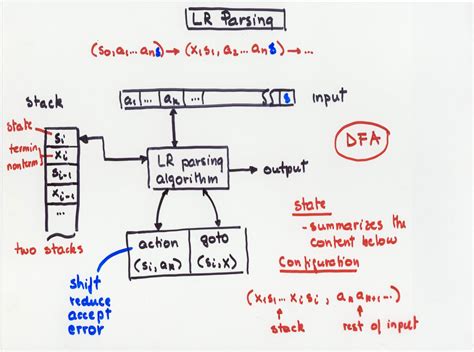 LR Parsing
(s0, a1... an$) → (x1s1, a2... an$) → ...
stack
a1 ... ak ... $ input
state
si
termin
nonterm
xi
si-1
xi-1
...
two stacks
LR parsing
algorithm
output
DFA
action
(si, ak)
goto
(si, X)
shift
reduce
accept
error
state
- summarizes the
content below
Configuration
(x1s1 ... xisi , akak+1...)
stack
rest of input